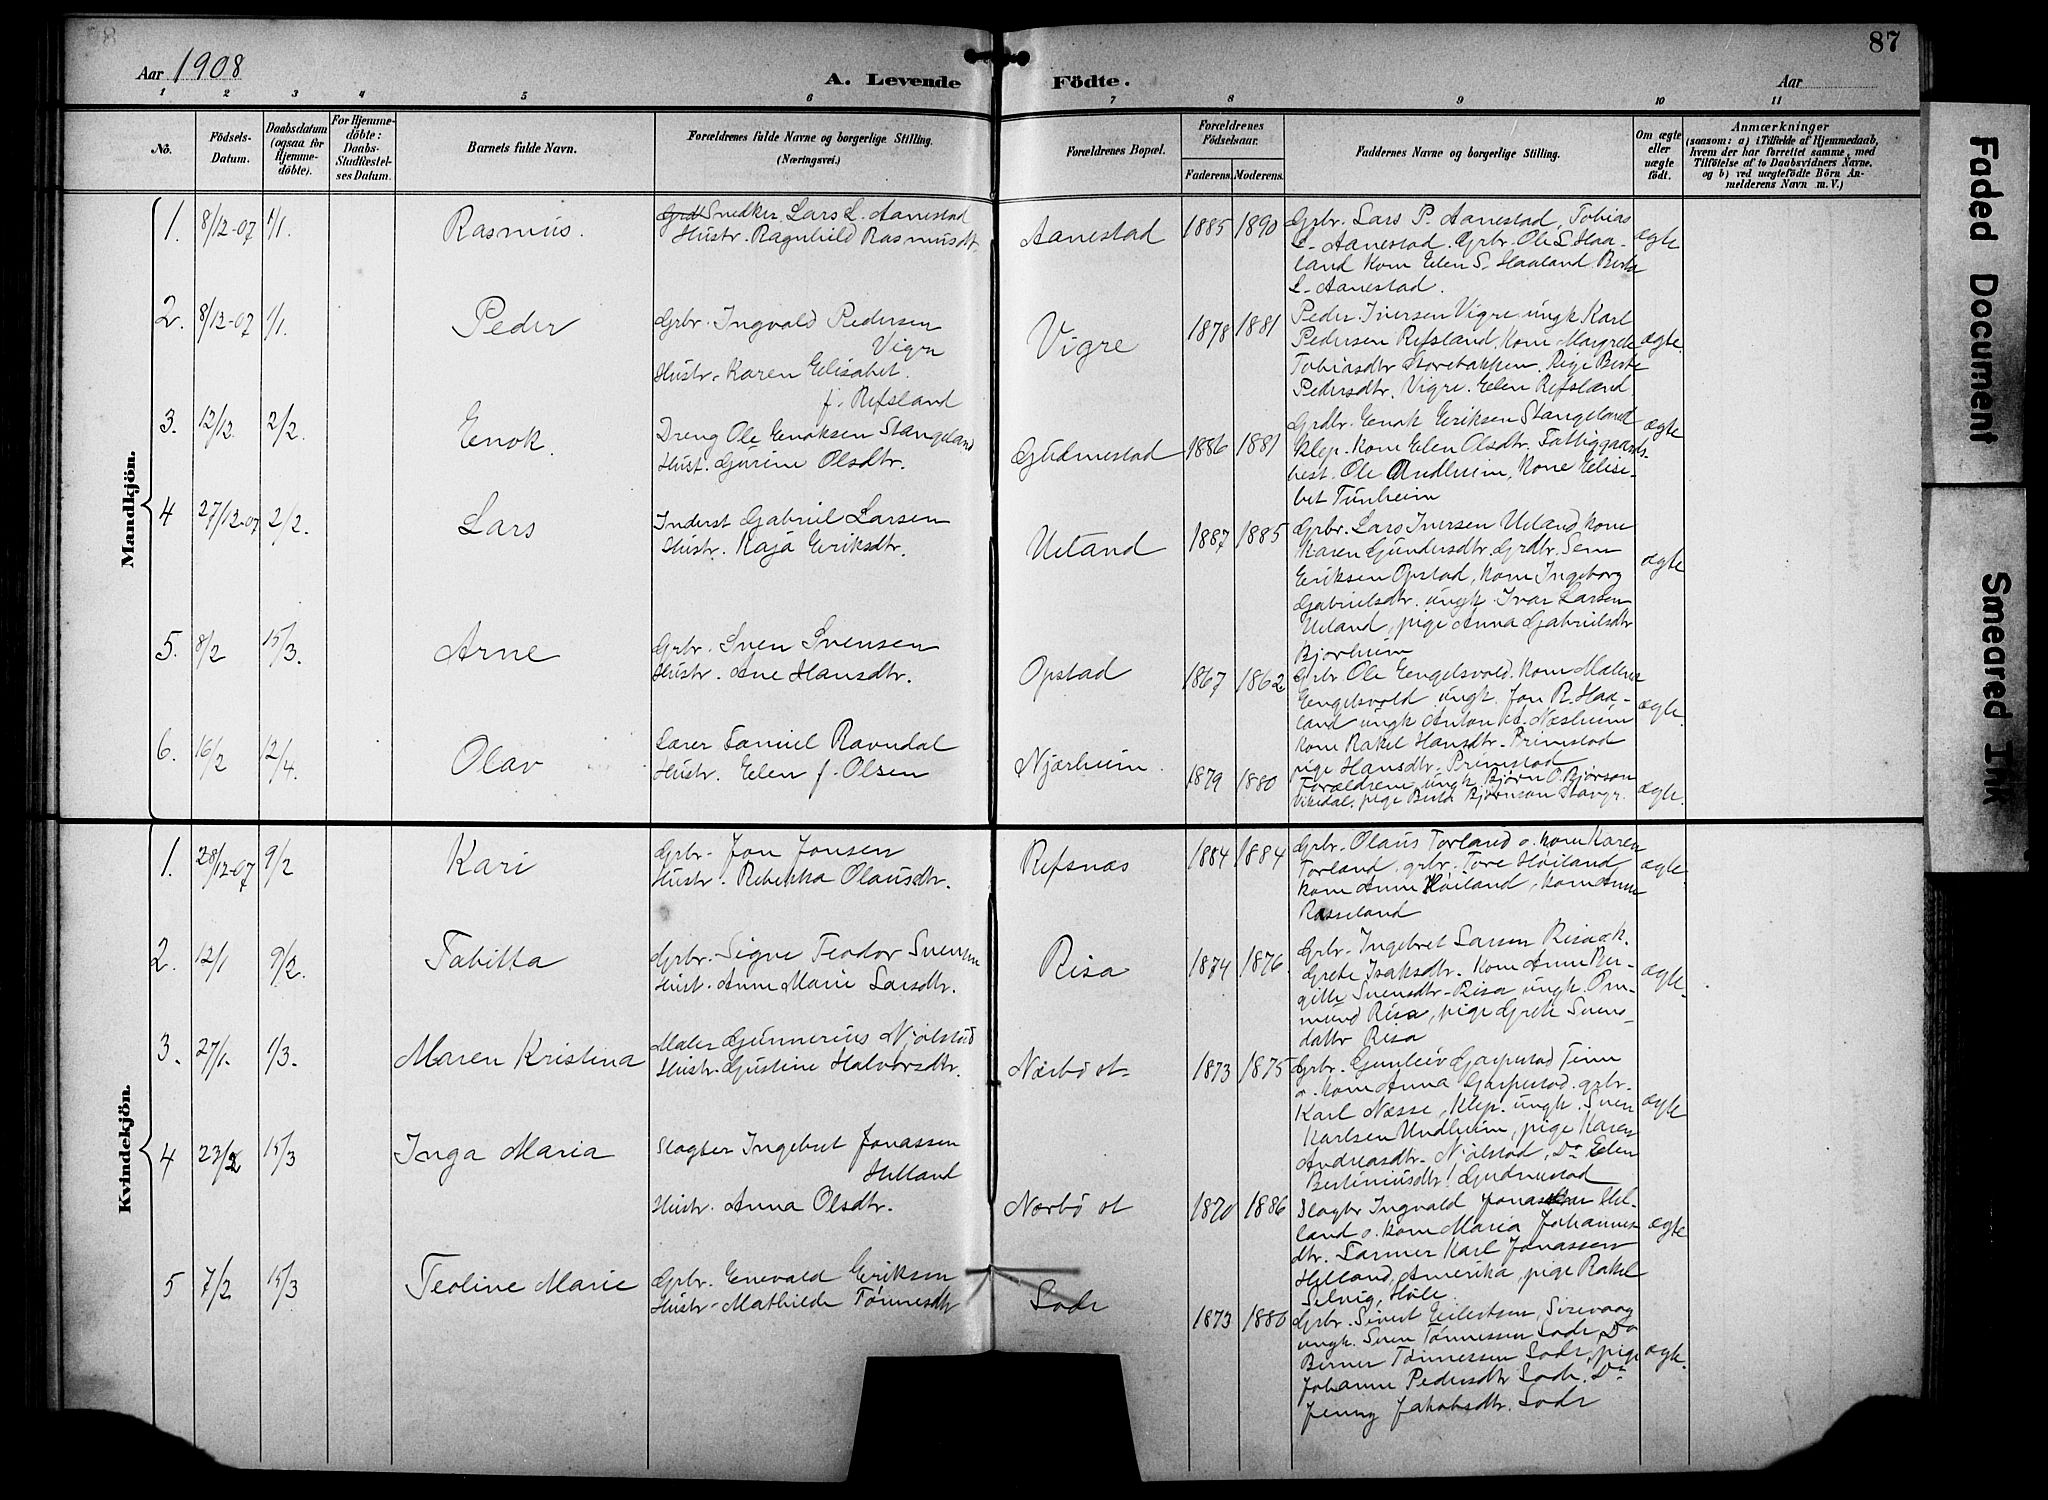 87
Aar 1908
A. Levende Födte.
Aar
1 2 3 4 5 6 7 8 9 10 11
No.
Födsels-Datum.
Daabsdatum (ogsaa for Hjemme-döbte).
For Hjemme-döbte: Daabs-Stadfæstel-ses Datum.
Barnets fulde Navn.
Forældrenes fulde Navne og borgerlige Stilling.
(Næringsvei.)
Forældrenes Bopæl.
Forældrenes Födselsaar.
Faderens. Moderens.
Faddernes Navne og borgerlige Stilling.
Om ægte eller uægte födt.
Anmærkninger
(saasom: a) i Tilfælde af Hjemmedaab, hvem der har forrettet samme, med Tilföielse af to Daabsvidners Navne, og b) ved uægtefödte Börn An-melderens Navn m. V.)
Mandkjön.
1. 8/12-07 1/1. Rasmus.
Snedker Lars L. Aanestad
Hustr. Ragnhild Rasmusdt.
Aanestad 1885 1890
Grbr. Lars P. Aanestad, Tobias
L. Aanestad. Grbr. Ole S. Haa-
land Kone Elen S. Haaland. Berta
L. Aanestad.
ægte
2. 8/12-07 1/1. Peder
Grbr. Ingvald Pedersen
Vigre
Hustr. Karen Elisabet.
f. Refsland
Vigre 1878 1881
Peder Iversen Vigre ungk. Karl
Pedersen Refsland, Kone Margrete
Tobiasdtr. Storebakken, Pige Berte
Pedersdtr. Vigre. Elen Refsland
ægte.
3. 12/12. 2/2. Enok.
Dreng Ole Enoksen Stangeland
Hust. Gurine Olsdtr.
Gudmestad 1886 1881
Grdbr. Enok Eriksen Stangeland
Klep. Kone Elen Olsdtr. Fattiggaards-
best. Ole Undheim, Kone Elisa-
bet Tunheim
ægte
4 27/12-07 2/2. Lars
Inderst Gabriel Larsen
Hustr. Kaja Eriksdtr.
Ueland 1887 1885
Grbr. Lars Iversen Ueland, kone
Karen Gundersdtr. Grdbr. Sem
Eriksen Opstad, kone Ingeborg
Gabrielsdtr. ungk. Ivar Larsen
Ueland, pige Anna Gabrielsdtr
Bjorheim
ægte
5. 8/2 15/3. Arne
Grbr. Sven Svensen
Hustr. Ane Hansdtr.
Opstad 1867 1862
Grbr. Ole Engelsvold. kone Malene
Engelsvold ungk. Jon R. Haa-
land ungk Anton A. Næsheim
kone Rakel Hansdtr. Primstad
pige Hansdtr. Primstad
ægte.
6. 16/2 12/4. Olav
Lærer Samuel Ravndal
Hustr. Elen f. Olsen
Njærheim. 1879 1880
Forældrene, ungk. Bjørn O. Bjørnson
Vikedal, pige Berta Bjørnson Stavgr.
ægte.
Kvindekjön.
1. 28/12-07 9/2 Kari
Grbr. Jon Jonsen
Hustr. Rebekka Olausdtr.
Refsnæs 1884 1884
Grbr. Olaus Torland o. kone Karen
Torland, grbr. Tore Høiland
kone Anne Høiland, kone Anne
Rosseland
ægte.
2. 12/1 9/2. Tabitta
Grbr. Sigve Teodor Svensen
Hust. Anne Marie Larsdtr.
Risa 1874 1876
Grbr. Ingebret Larsen Risa o. k.
Grete Isaksdtr. Kone Anne Ber-
gitte Svensdtr. Risa ungk. Om-
mund Risa, pige Grete Svens-
datter Risa
ægte.
3. 27/1. 1/3. Maren Kristina
Maler Gunnerius Njølstad
Hustr. Gustine Halvorsdtr.
Nærbø st. 1873 1875
Grbr. Gunleiv Garpestad Time
o. kone Anna Garpestad. grbr.
Karl Næsse, Klep. ungk. Sven
Karlsen Undheim, pige Karen
Andreasdtr. Njølstad, Do Elen
Bertiniusdtr! Gudmestad
ægte
4 23/2 15/3 Inga Maria
Slagter Ingebret Jonassen
Helland
Hustr. Anna Olsdtr.
Nærbø st 1870 1886
Slagtr Ingvald Jonassen Hel-
land o. kone Maria Johannes
dtr. Farmer Karl Jonassen
Helland, Amerika, pige Rakel
Selvig, Høle.
ægte
5 7/2 15/3 Teoline Marie
Grbr. Enevald Eriksen
Hustr. Mathilde Tønnesdtr
Lode 1873 1880
Grbr. Sivert Eilertsen, Sirevaag
ungk. Sven Tønnessen Lode, Do
Berner Tønnessen Lode, pige
Johanne Pedersdtr Lode. Do
Jenny Jakobsdtr. Lode
ægte.
Faded Document
Smeared Ink